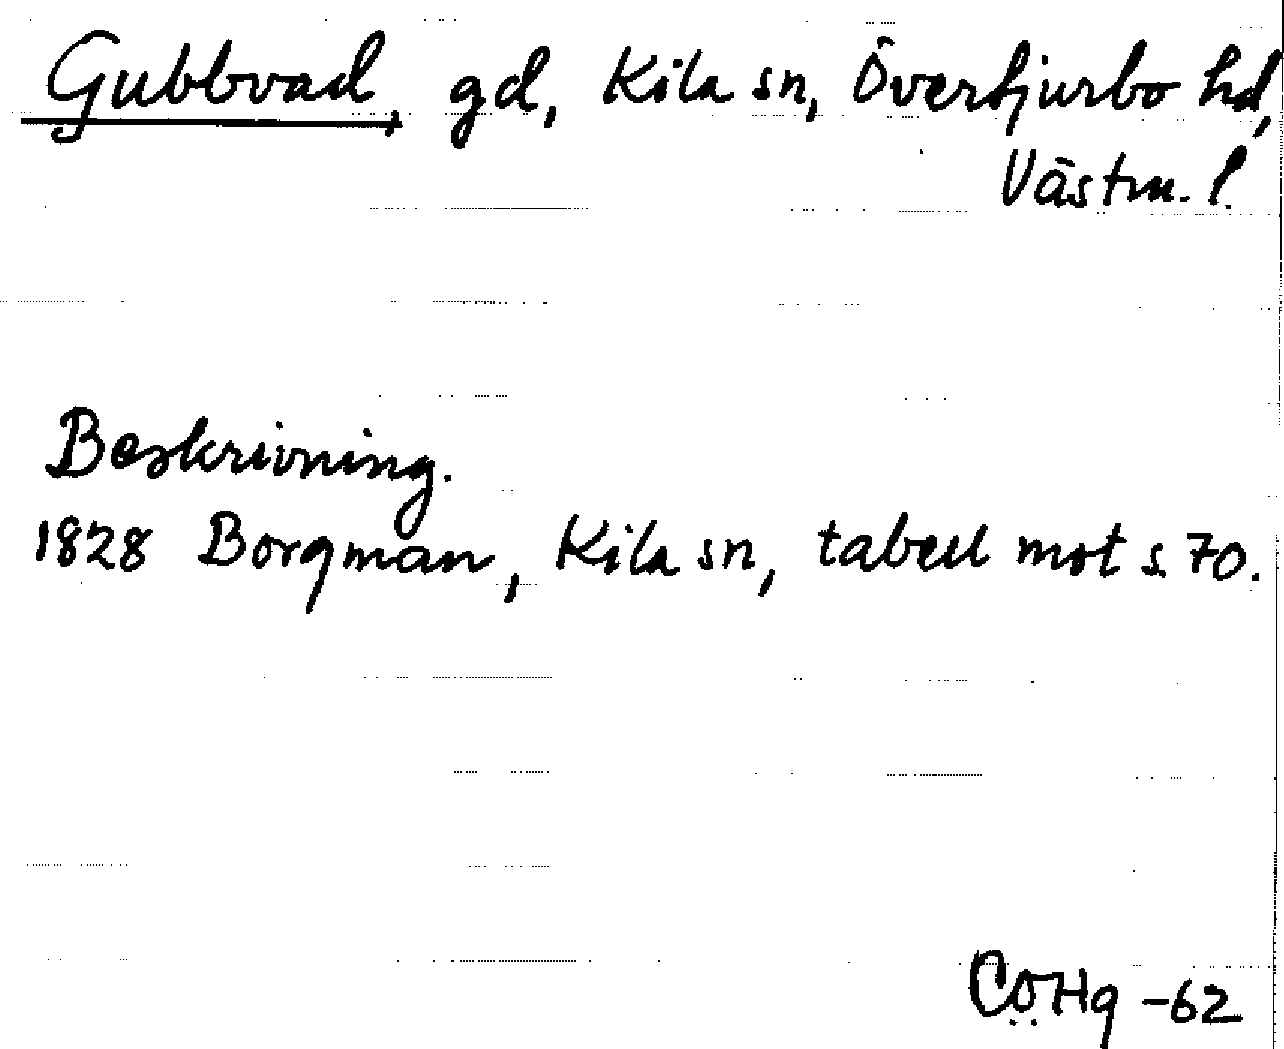 Gubbvad, gd, Kila sn, Övertjurbo hd,
Västm. l.
Beskrivning.
1828 Borgman, Kila sn, tabell mot s. 70.
CÖHg -62